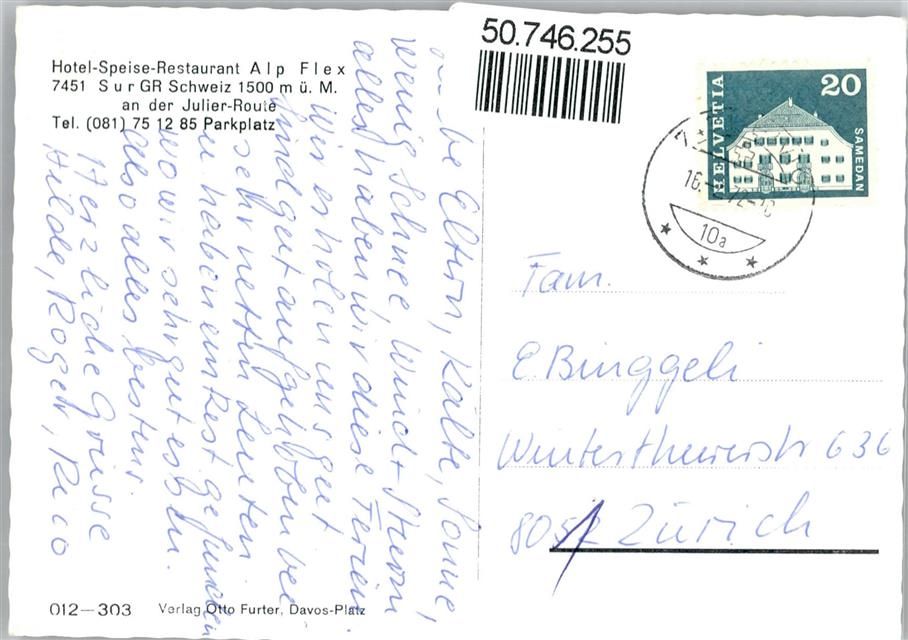 50.746.255
Hotel-Speise-Restaurant Alp Flex
7451 Sur GR Schweiz 1500 m ü. M.
an der Julier-Route
Tel. (081) 75 12 85 Parkplatz
HELVETIA
20
SAMEDAN
16.
10a
be Eltern, Kälte, Sonne,
wenig Schnee Wind + Sturm
alles haben wir diese Ferien
Wir erholen uns gut
sind gut aufgehoben bei
sehr netten Leuten
u. haben ein Rest. gefunden
wo wir sehr gut essen.
also alles bestens
Herzliche Grüsse
Hilde, Roger, Rico
Fam.
E Binggeli
Winterthurerstr 636
Zürich
012—303 Verlag Otto Furter, Davos-Platz